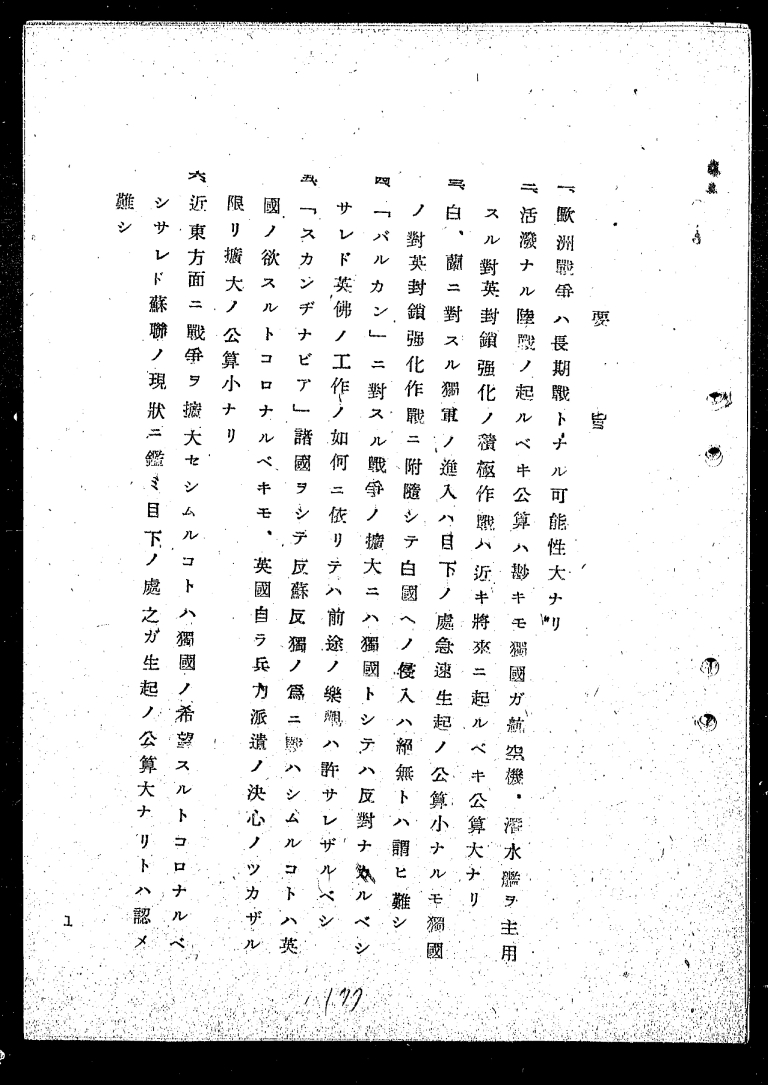 要旨
一、歐洲戰爭ハ長期戰トナル可能性大ナリ
二、活潑ナル陸戰ノ起ルベキ公算ハ尠キモ獨國ガ航空機、潛水艦ヲ主用
スル對英封鎖强化ノ積極作戰ハ近キ將來ニ起ルベキ公算大ナリ
三、白、蘭ニ對スル獨軍ノ進入ハ目下ノ處急速生起ノ公算小ナルモ獨國
ノ對英封鎖强化作戰ニ附隨シテ白國ヘノ侵入ハ絕無トハ謂ヒ難シ
四、「バルカン」ニ對スル戰爭ノ擴大ニハ獨國トシテハ反對ナルベシ
サレド英佛ノ工作ノ如何ニ依リテハ前途ノ樂觀ハ許サレザルベシ
五、「スカンヂナビア」諸國ヲシテ反蘇反獨ノ爲ニ戰ハシムルコトハ英
國ノ欲スルトコロナルベキモ、英國自ラ兵力派遣ノ決心ノツカザル
限リ擴大ノ公算小ナリ
六、近東方面ニ戰爭ヲ擴大セシムルコトハ獨國ノ希望スルトコロナルベ
シサレド蘇聯ノ現狀ニ鑑ミ目下ノ處之ガ生起ノ公算大ナリトハ認メ
難シ
1
177